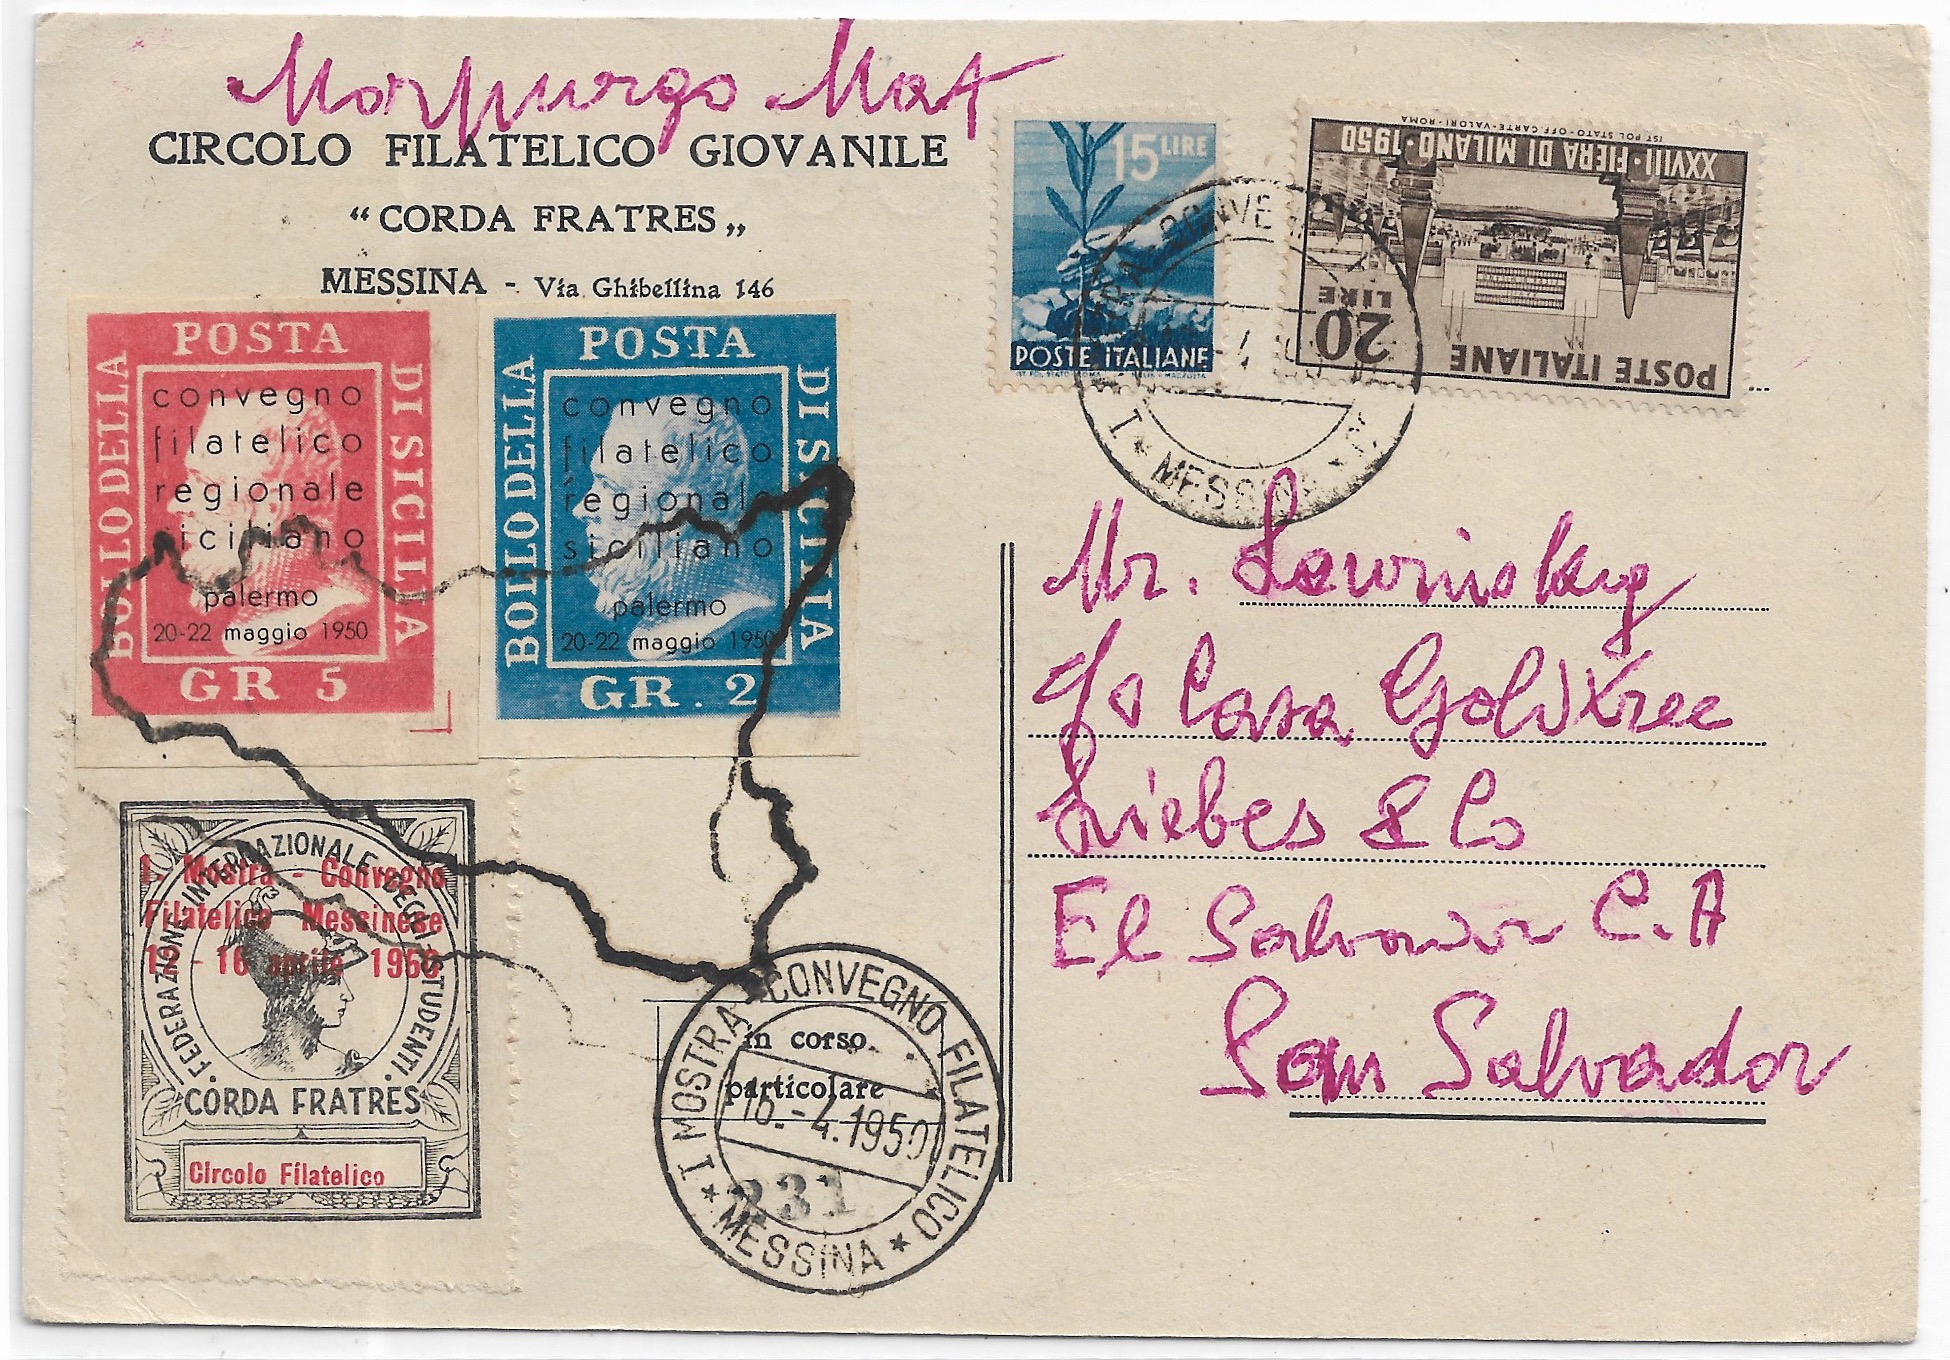 Morpurgo Mat
CIRCOLO FILATELICO GIOVANILE
“CORDA FRATRES„
MESSINA - Via Ghibellina 146
15 LIRE
POSTE ITALIANE
IST POL. STATO - OFF. CARTE-VALORI - ROMA
XXVIII · FIERA DI MILANO · 1950
20
LIRE
POSTE ITALIANE
MESSINA
POSTA
BOLLO DELLA
DI SICILIA
convegno
filatelico
regionale
siciliano
palermo
20-22 maggio 1950
GR 5
POSTA
BOLLO DELLA
DI SICILIA
convegno
filatelico
regionale
siciliano
palermo
20-22 maggio 1950
GR. 2
Mr. Lewinsky
c/o Casa Goldtree
Liebes & Co
El Salvador C.A
San Salvador
FEDERAZIONE INTERNAZIONALE DEGLI STUDENTI
I. Mostra - Convegno
Filatelico Messinese
- 16 aprile 1950
CORDA FRATRES
Circolo Filatelico
I MOSTRA CONVEGNO FILATELICO
in corso
particolare
16.-4.1950
231
★ MESSINA ★